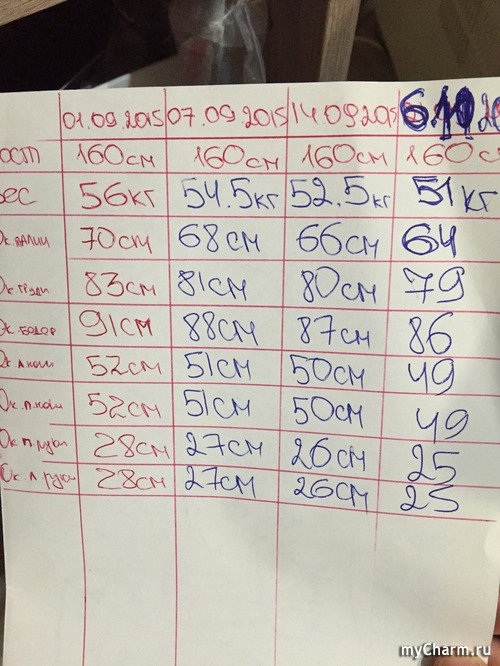 01.09.2015 07.09.2015 14.09.2015
ост 160см 160см 160см 160с
ес 56кг 54.5кг 52.5кг 51кг
Ок. талии 70см 68см 66см 64
Ок. груди 83см 81см 80см 79
Ок. бедер 91см 88см 87см 86
Ок. л. ноги 52см 51см 50см 49
Ок. п. ноги 52см 51см 50см 49
Ок. п. руки 28см 27см 26см 25
Ок. л. руки 28см 27см 26см 25
myCharm.ru